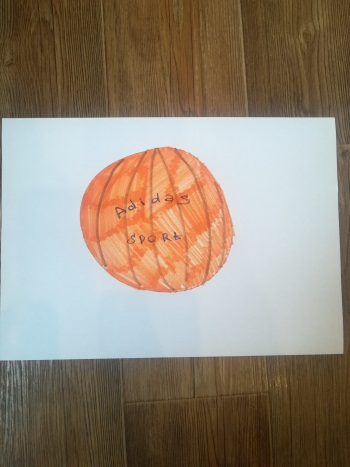 Adidas
SPORt